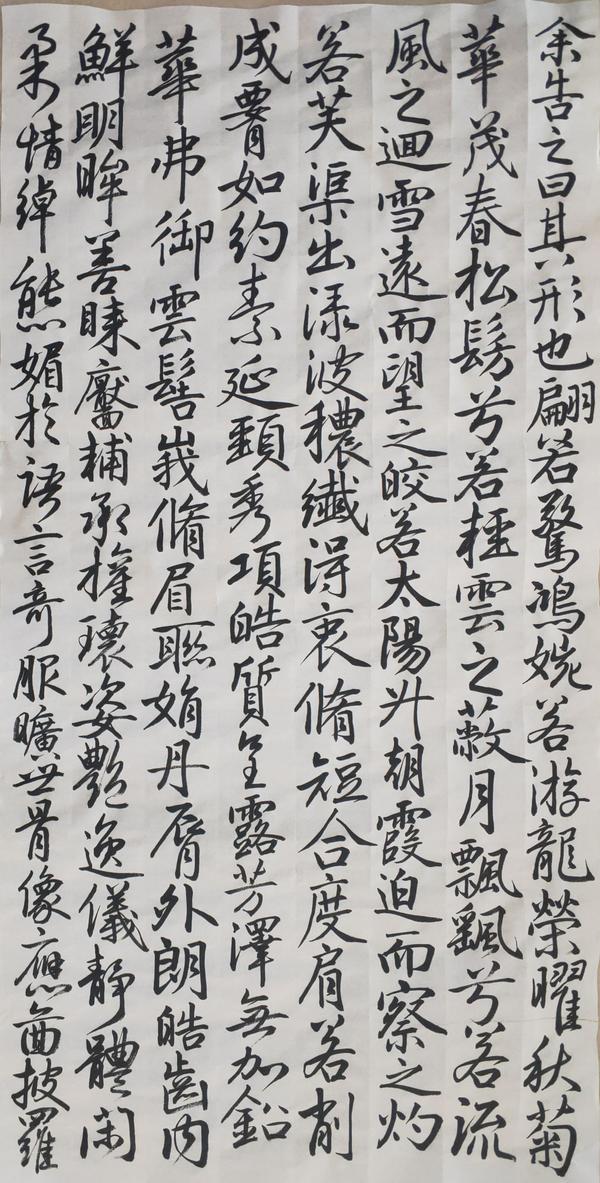 余告之曰其形也翩若驚鴻婉若游龍榮曜秋菊
華茂春松髣兮若輕雲之蔽月飄颻兮若流
風之迴雪遠而望之皎若太陽升朝霞迫而察之灼
若芙渠出淥波穠纖得衷脩短合度肩若削
成腰如約素延頸秀項皓質呈露芳澤無加鉛
華弗御雲髻峩脩眉聯娟丹脣外朗皓齒內
鮮明眸善睞靨輔承權瓌姿艷逸儀靜體閑
柔情綽態媚於語言奇服曠世骨像應圖披羅